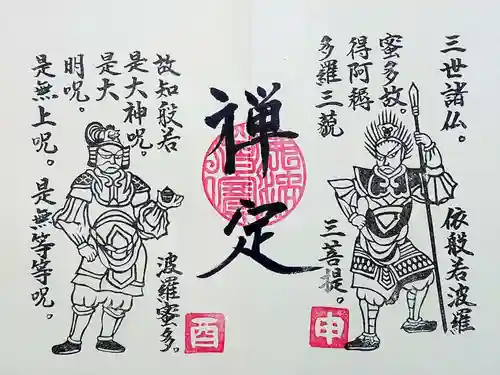 三世諸仏。
依般若波羅
蜜多故。
得阿耨
多羅三藐
三菩提。
申
禅定
故知般若
波羅蜜多。
是大神呪。
是大
明呪。
是無上呪。是無等等呪。
酉